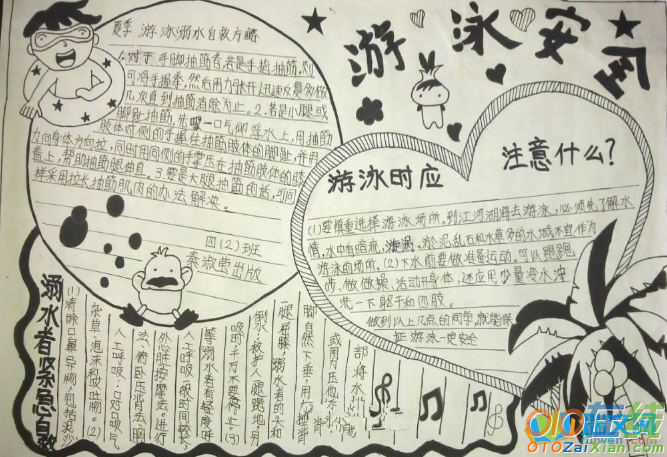 游泳安全
夏季游泳溺水自救方略
1.对于手脚抽筋者,若是手指抽筋,则
可将手握拳,然后用力张开,迅速反复多做
几次直到抽筋消除为止。2.若是小腿或
脚趾抽筋,先吸一口气仰浮水上,用抽筋
肢体对侧的手握住抽筋肢体的脚趾,并用
力向身体方向拉,同时用同侧的手掌压在抽筋肢体的膝
盖上,帮助抽筋腿伸直。3.要是大腿抽筋的话,可同
样采用拉长抽筋肌肉的办法解决。
四(2)班
李淑莹出版
游泳时应
注意什么?
(1)要慎重选择游泳场所。到江河湖海去游泳,必须先了解水
情,水中有暗流,漩涡,淤泥,乱石和水草多的水域不宜作为
游泳的场所。(2)下水前要做准备运动。可以跑跑
步,做做操,活动开身体,还应用少量冷水冲
洗一下躯干和四肢。
做到以上几点的同学,就能保
证游泳一定安全
溺水者紧急自救
(1)清除口鼻异物,包括泥沙
杂草、泡沫和呕吐物。(2)
人工呼吸:口对口吸气
法、俯卧压背法、胸
外心脏按摩法。进行
人工呼吸,吸时间较长
等溺水者有轻度呼
吸时,千万不要停止。(3)
倒水:救护人一腿跪地,另
一腿屈膝,溺水者的头和
脚自然下垂,用
部将水
010在线
作文网
zuowen.com
010ZaiXian.com